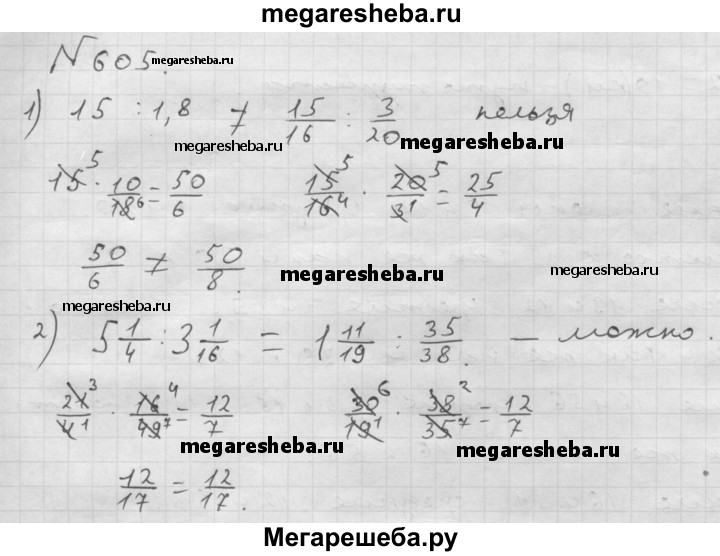 megaresheba.ru
№605. megaresheba.ru
1) 15 : 1,8 ≠ 15/16 : 3/20 нельзя
megaresheba.ru megaresheba.ru
15 5 · 10/18 6 = 50/6 15 5/16 4 · 20 5/3 1 = 25/4
50/6 ≠ 50/8. megaresheba.ru megaresheba.ru
megaresheba.ru
2) 5 1/4 : 3 1/16 = 1 11/19 : 35/38. — можно.
21 3/4 1 · 16 4/49 7 = 12/7 30 6/19 1 · 38 2/35 7 = 12/7
megaresheba.ru megaresheba.ru
12/17 = 12/17.
Мегарешеба.ру